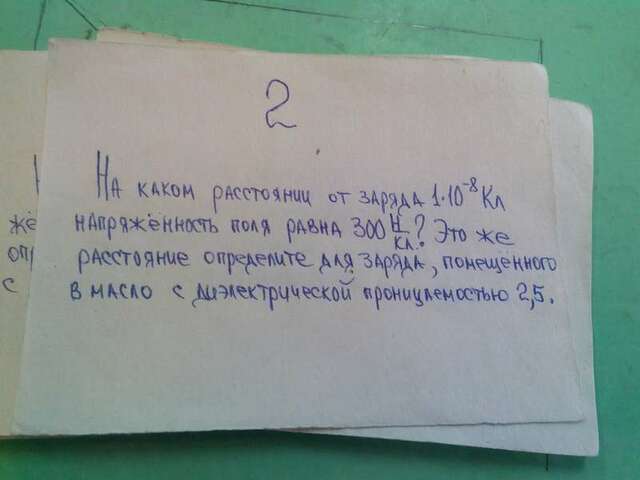 2
На каком расстоянии от заряда 1·10⁻⁸ Кл
напряжённость поля равна 300 Н/Кл? Это же
расстояние определите для заряда, помещённого
в масло с диэлектрической проницаемостью 2,5.
жё
опр
с